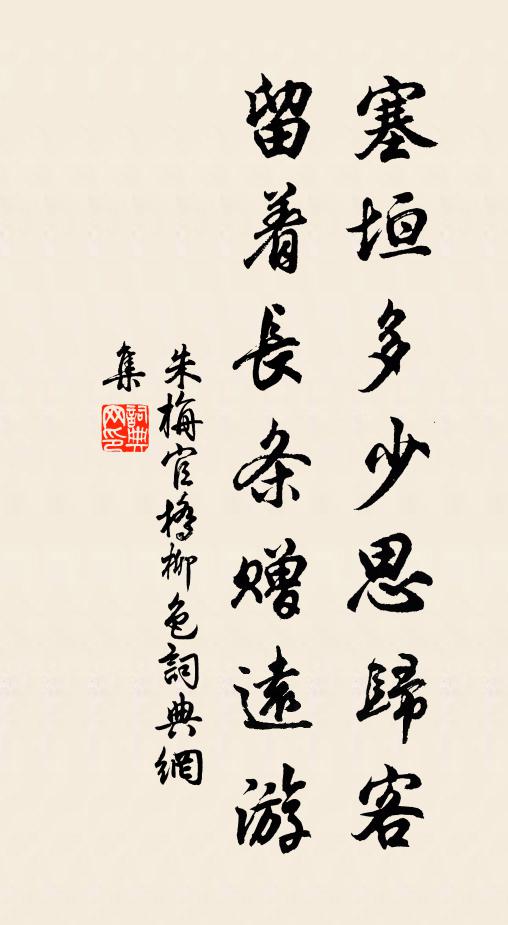 塞垣多少思歸客
留着長条贈遠游
朱梅官橋柳色詞典網
集
詞典網印